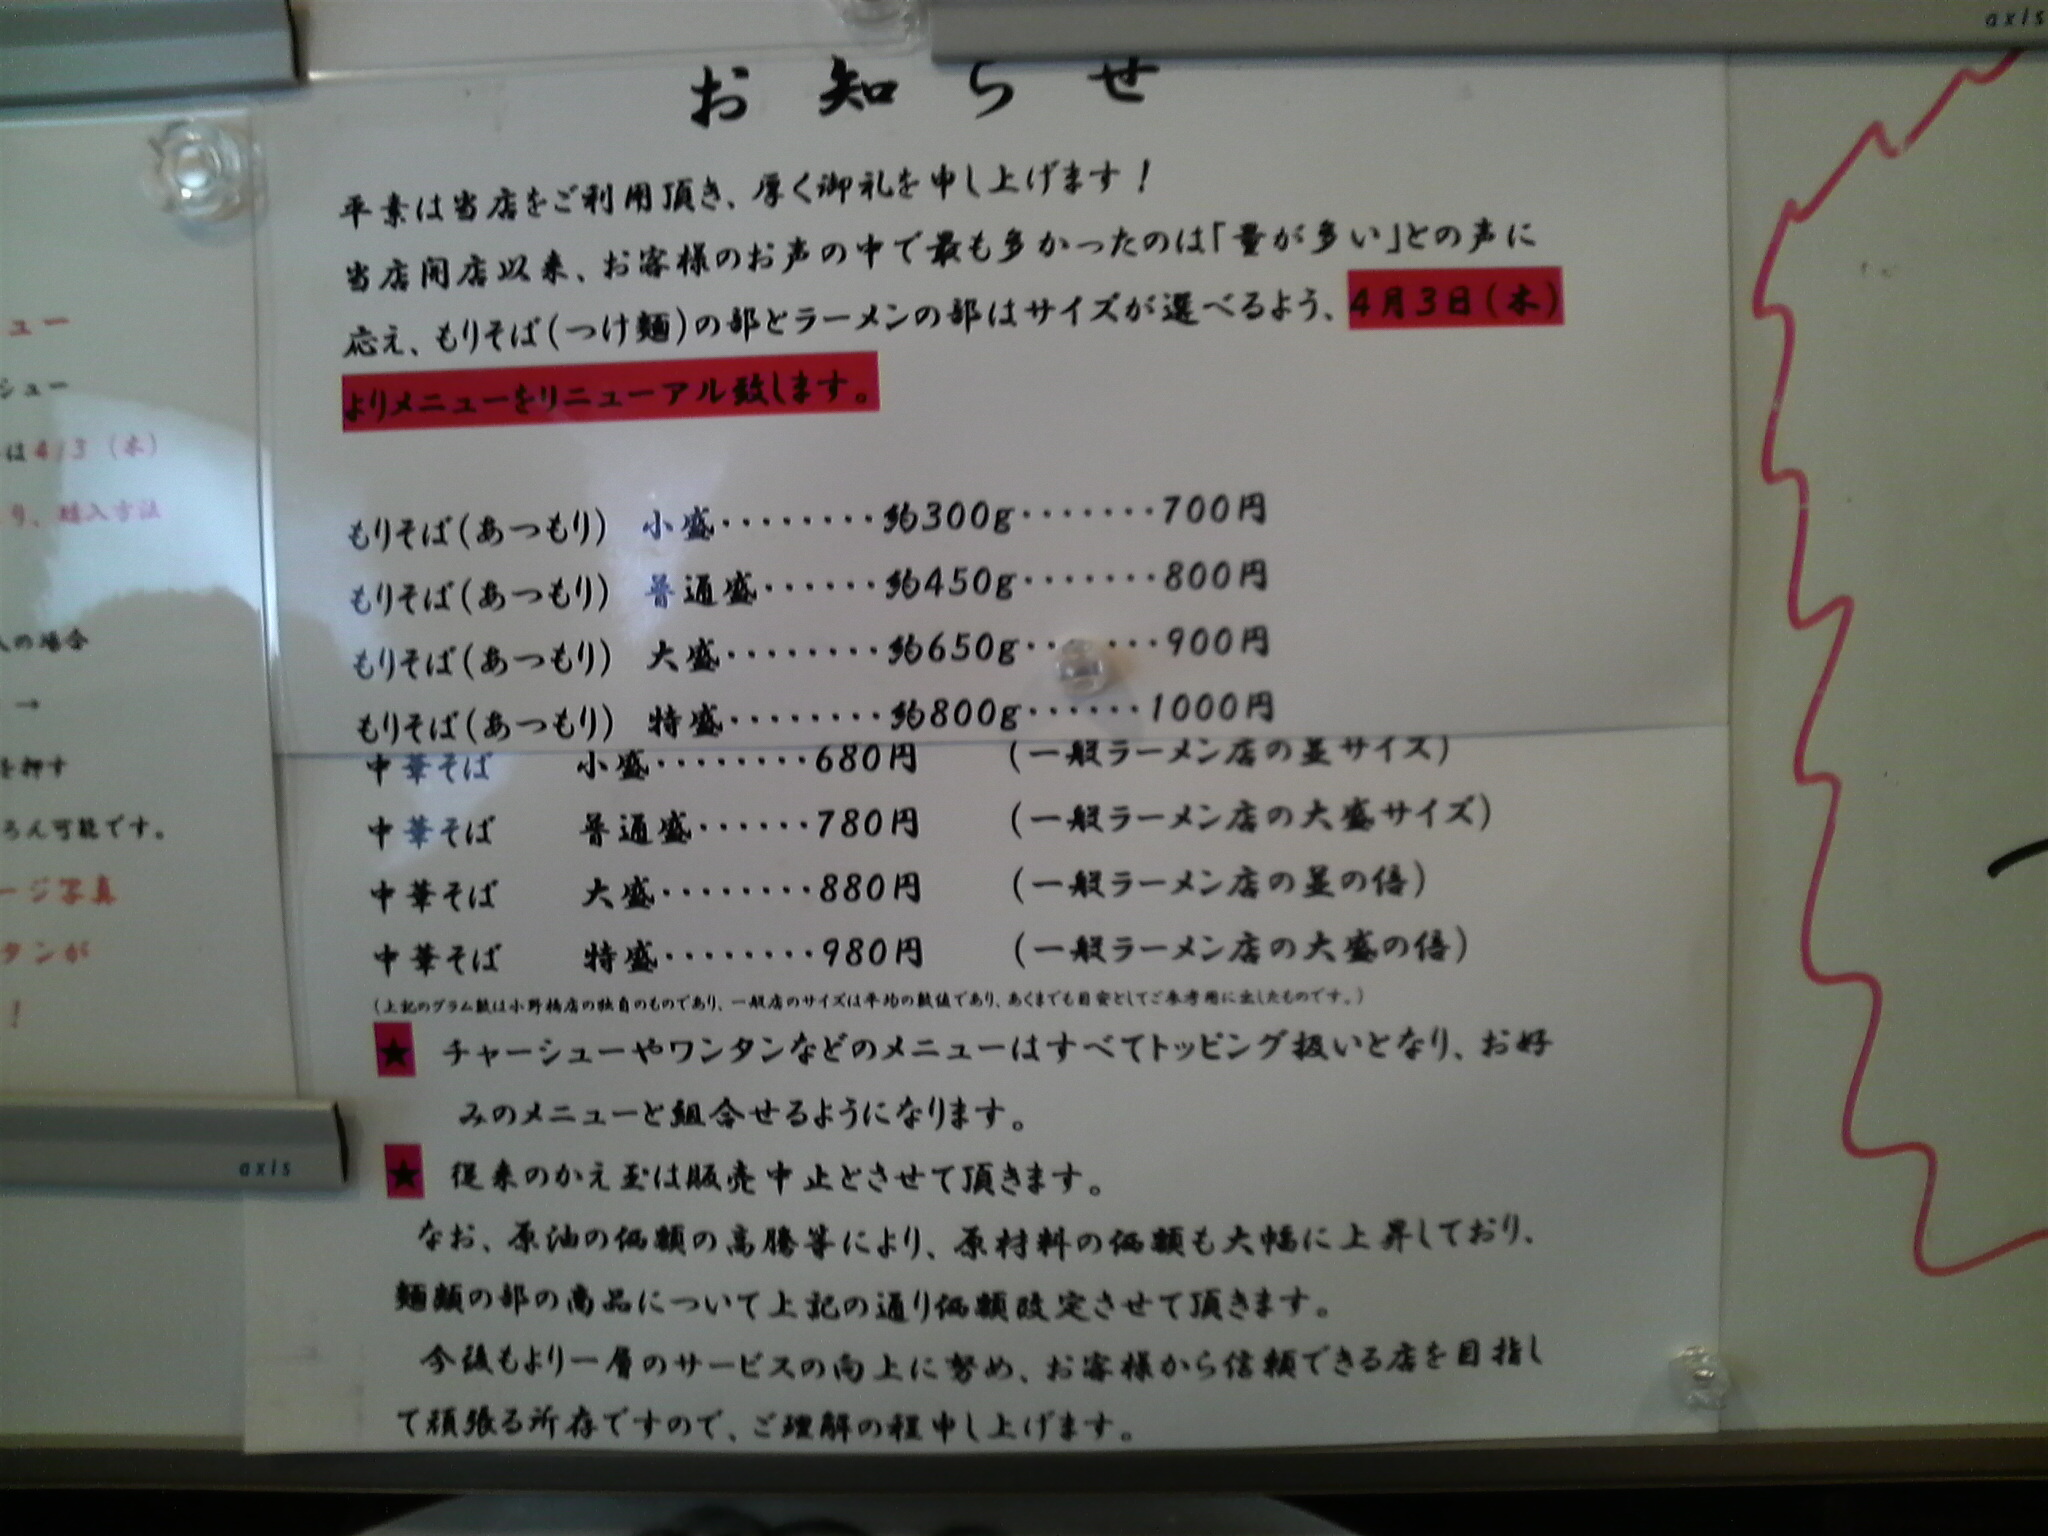 axis
お知らせ
平素は当店をご利用頂き、厚く御礼を申し上げます！
当店開店以来、お客様のお声の中で最も多かったのは「量が多い」との声に
応え、もりそば(つけ麺)の部とラーメンの部はサイズが選べるよう、4月3日(木)
よりメニューをリニューアル致します。
もりそば(あつもり) 小盛········約300g·······700円
もりそば(あつもり) 普通盛······約450g·······800円
もりそば(あつもり) 大盛········約650g·······900円
もりそば(あつもり) 特盛········約800g······1000円
中華そば 小盛········680円 (一般ラーメン店の並サイズ)
中華そば 普通盛······780円 (一般ラーメン店の大盛サイズ)
中華そば 大盛········880円 (一般ラーメン店の並の倍)
中華そば 特盛········980円 (一般ラーメン店の大盛の倍)
(上記のグラム数は小野橋店の独自のものであり、一般店のサイズは平均の数値であり、あくまでも目安としてご参考用に出したものです。)
★ チャーシューやワンタンなどのメニューはすべてトッピング扱いとなり、お好
みのメニューと組合せるようになります。
★ 従来のかえ玉は販売中止とさせて頂きます。
なお、原油の価額の高騰等により、原材料の価額も大幅に上昇しており、
麺類の部の商品について上記の通り価額改定させて頂きます。
今後もより一層のサービスの向上に努め、お客様から信頼できる店を目指し
て頑張る所存ですので、ご理解の程申し上げます。
ュー
シュー
は4/3（木）
り、購入方法
人の場合
→
を押す
ろん可能です。
ージ写真
タンが
！
axis